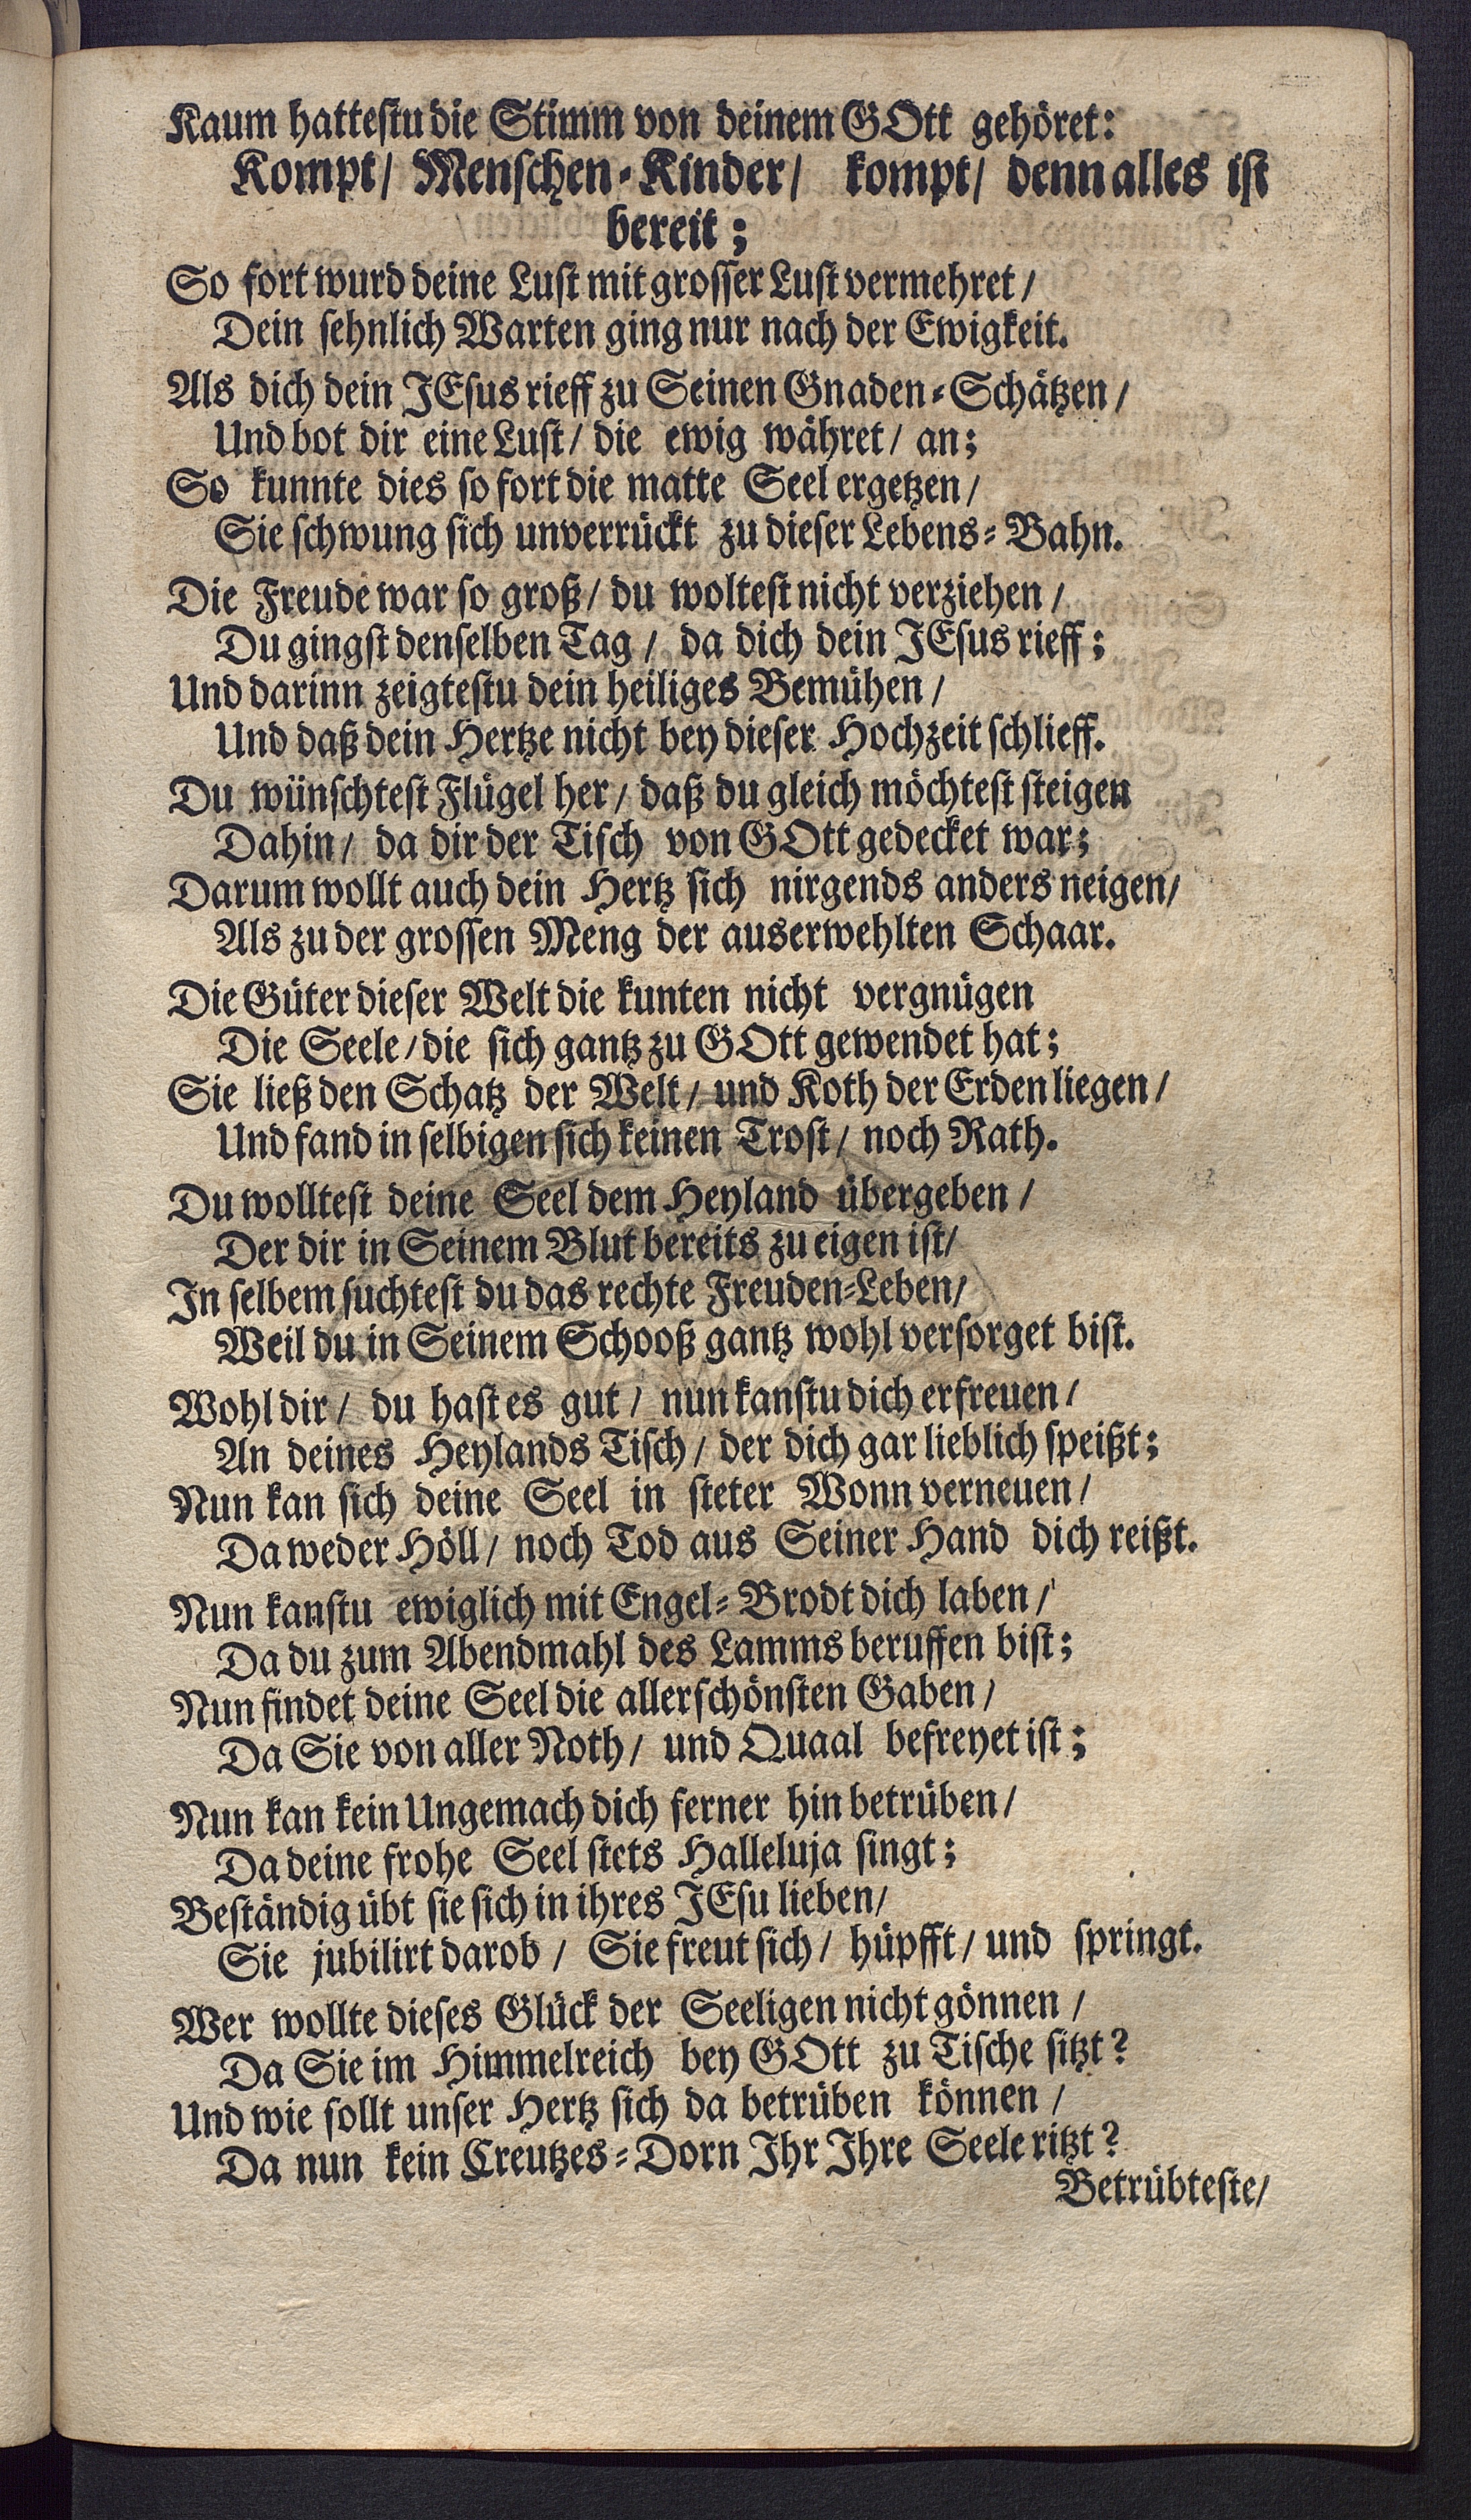 Kaum hattestu die Stimm von deinem GOtt gehöret:
Kompt/ Menschen-Kinder/ kompt/ denn alles ist
bereit;
So fort wurd deine Lust mit grosser Lust vermehret/
Dein sehnlich Warten ging nur nach der Ewigkeit.
Als dich dein JEsus rieff zu Seinen Gnaden-Schätzen/
Und bot dir eine Lust/ die ewig währet/ an;
So kunnte dies so fort die matte Seel ergetzen/
Sie schwung sich unverrückt zu dieser Lebens-Bahn.
Die Freude war so groß/ du woltest nicht verziehen/
Du gingst denselben Tag/ da dich dein JEsus rieff;
Und darinn zeigtestu dein heiliges Bemühen/
Und daß dein Hertze nicht bey dieser Hochzeit schlieff.
Du wünschtest Flügel her/ daß du gleich möchtest steigen
Dahin/ da dir der Tisch von GOtt gedecket war;
Darum wollt auch dein Hertz sich nirgends anders neigen/
Als zu der grossen Meng der auserwehlten Schaar.
Die Güter dieser Welt die kunten nicht vergnügen
Die Seele/ die sich gantz zu GOtt gewendet hat;
Sie ließ den Schatz der Welt/ und Koth der Erden liegen/
Und fand in selbigen sich keinen Trost/ noch Rath.
Du wolltest deine Seel dem Heyland übergeben/
Der dir in Seinem Blut bereits zu eigen ist/
In selbem suchtest du das rechte Freuden-Leben/
Weil du in Seinem Schooß gantz wohl versorget bist.
Wohl dir/ du hast es gut/ nun kanstu dich erfreuen/
An deines Heylands Tisch/ der dich gar lieblich speißt;
Nun kan sich deine Seel in steter Wonn verneuen/
Da weder Höll/ noch Tod aus Seiner Hand dich reißt.
Nun kanstu ewiglich mit Engel-Brodt dich laben/
Da du zum Abendmahl des Lamms beruffen bist;
Nun findet deine Seel die allerschönsten Gaben/
Da Sie von aller Noth/ und Quaal befreyet ist;
Nun kan kein Ungemach dich ferner hin betrüben/
Da deine frohe Seel stets Halleluja singt;
Beständig übt sie sich in ihres JEsu lieben/
Sie jubilirt darob/ Sie freut sich/ hüpfft/ und springt.
Wer wollte dieses Glück der Seeligen nicht gönnen/
Da Sie im Himmelreich bey GOtt zu Tische sitzt?
Und wie sollt unser Hertz sich da betrüben können/
Da nun kein Creutzes-Dorn Ihr Ihre Seele ritzt?
Betrübteste/